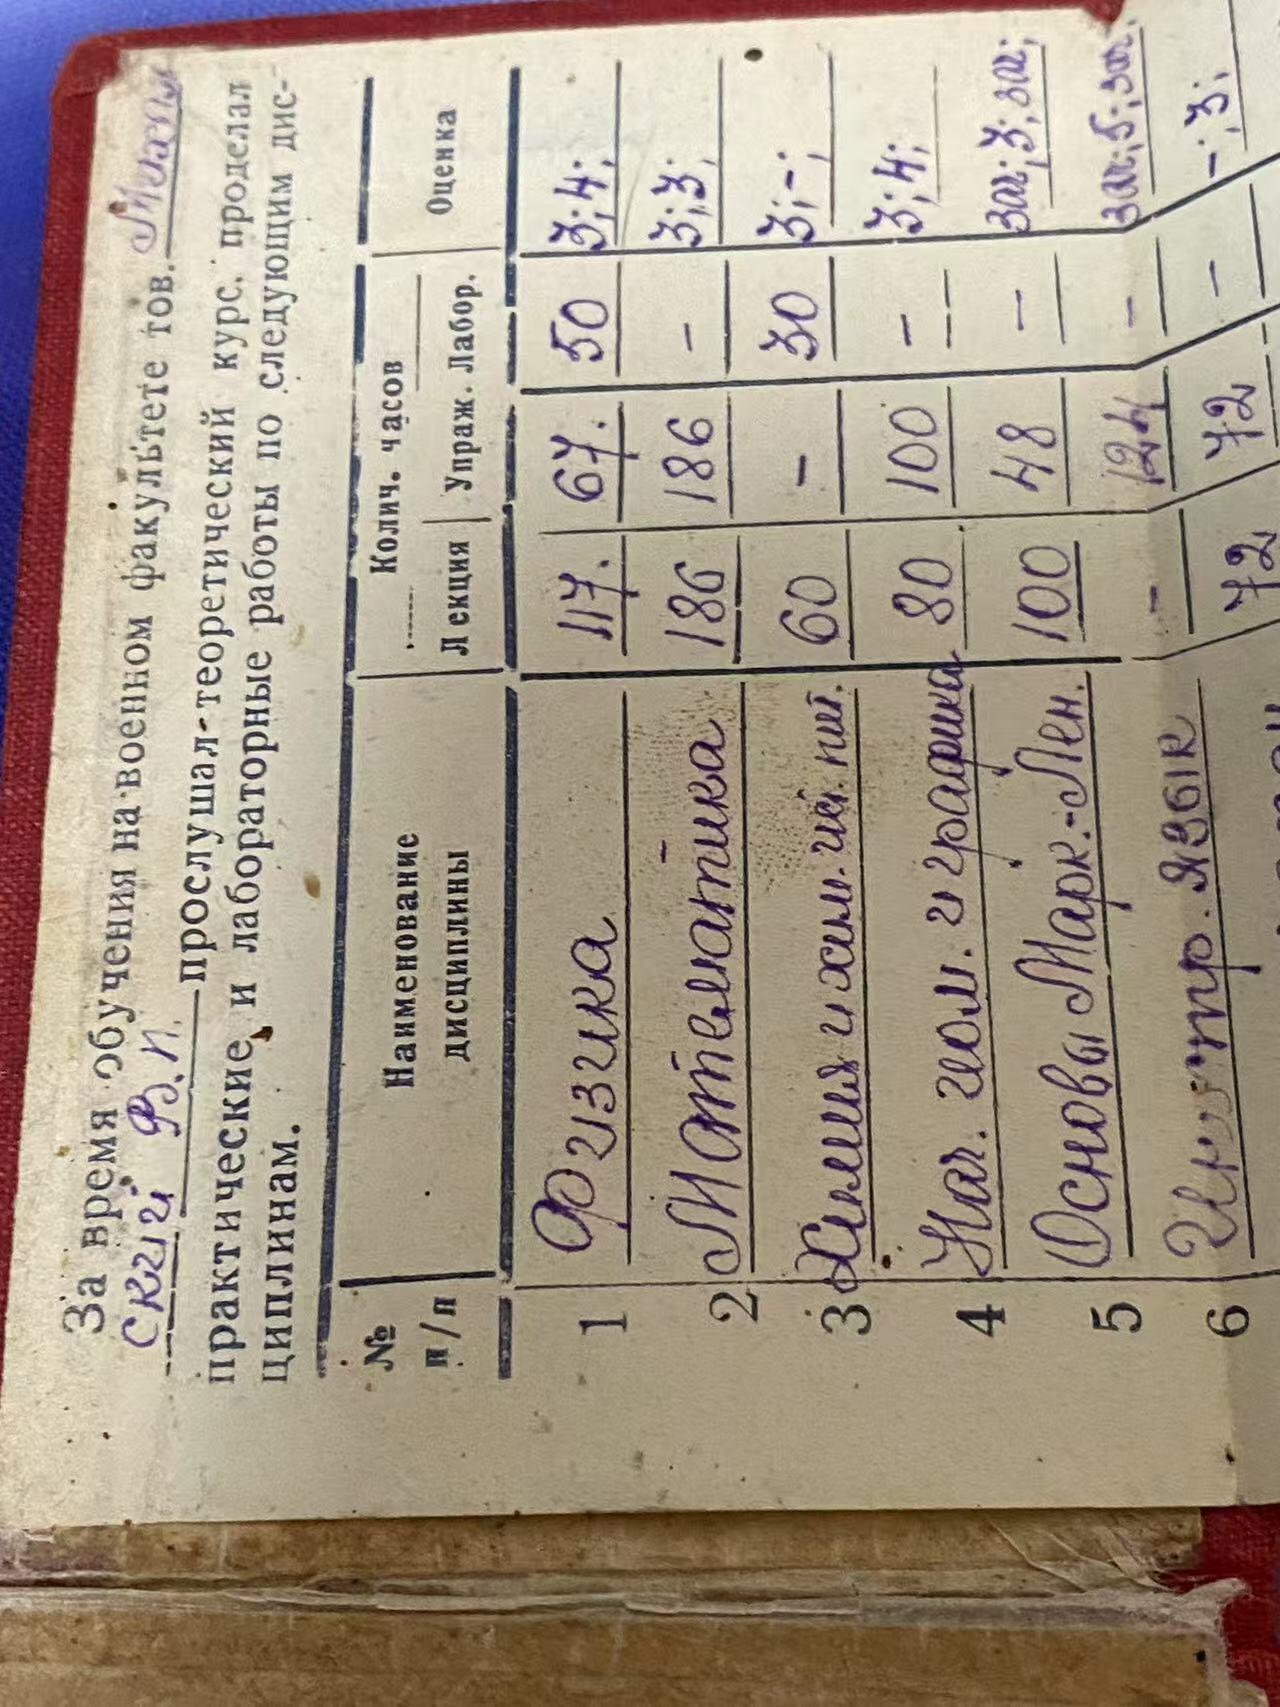 За время обучения на военном факультете тов.
ский Ф.П. прослушал теоретический курс, проделал
практические и лабораторные работы по следующим дис-
циплинам.
№ п/п Наименование дисциплины Колич. часов Оценка
Лекция Упраж. Лабор.
1 Физика 117. 67. 50 3; 4;
2 Математика 186 186 - 3; 3;
3 Химия и хим. 60 - 30 3; -;
4 Нач. геом. и графика 80 100 - 3; 4;
5 Основы Марк.-Лен. 100 48 - зач; 3; зач;
6 Иностр. язык - 124 - зач; 5; зач.
72 72 - -; 3;